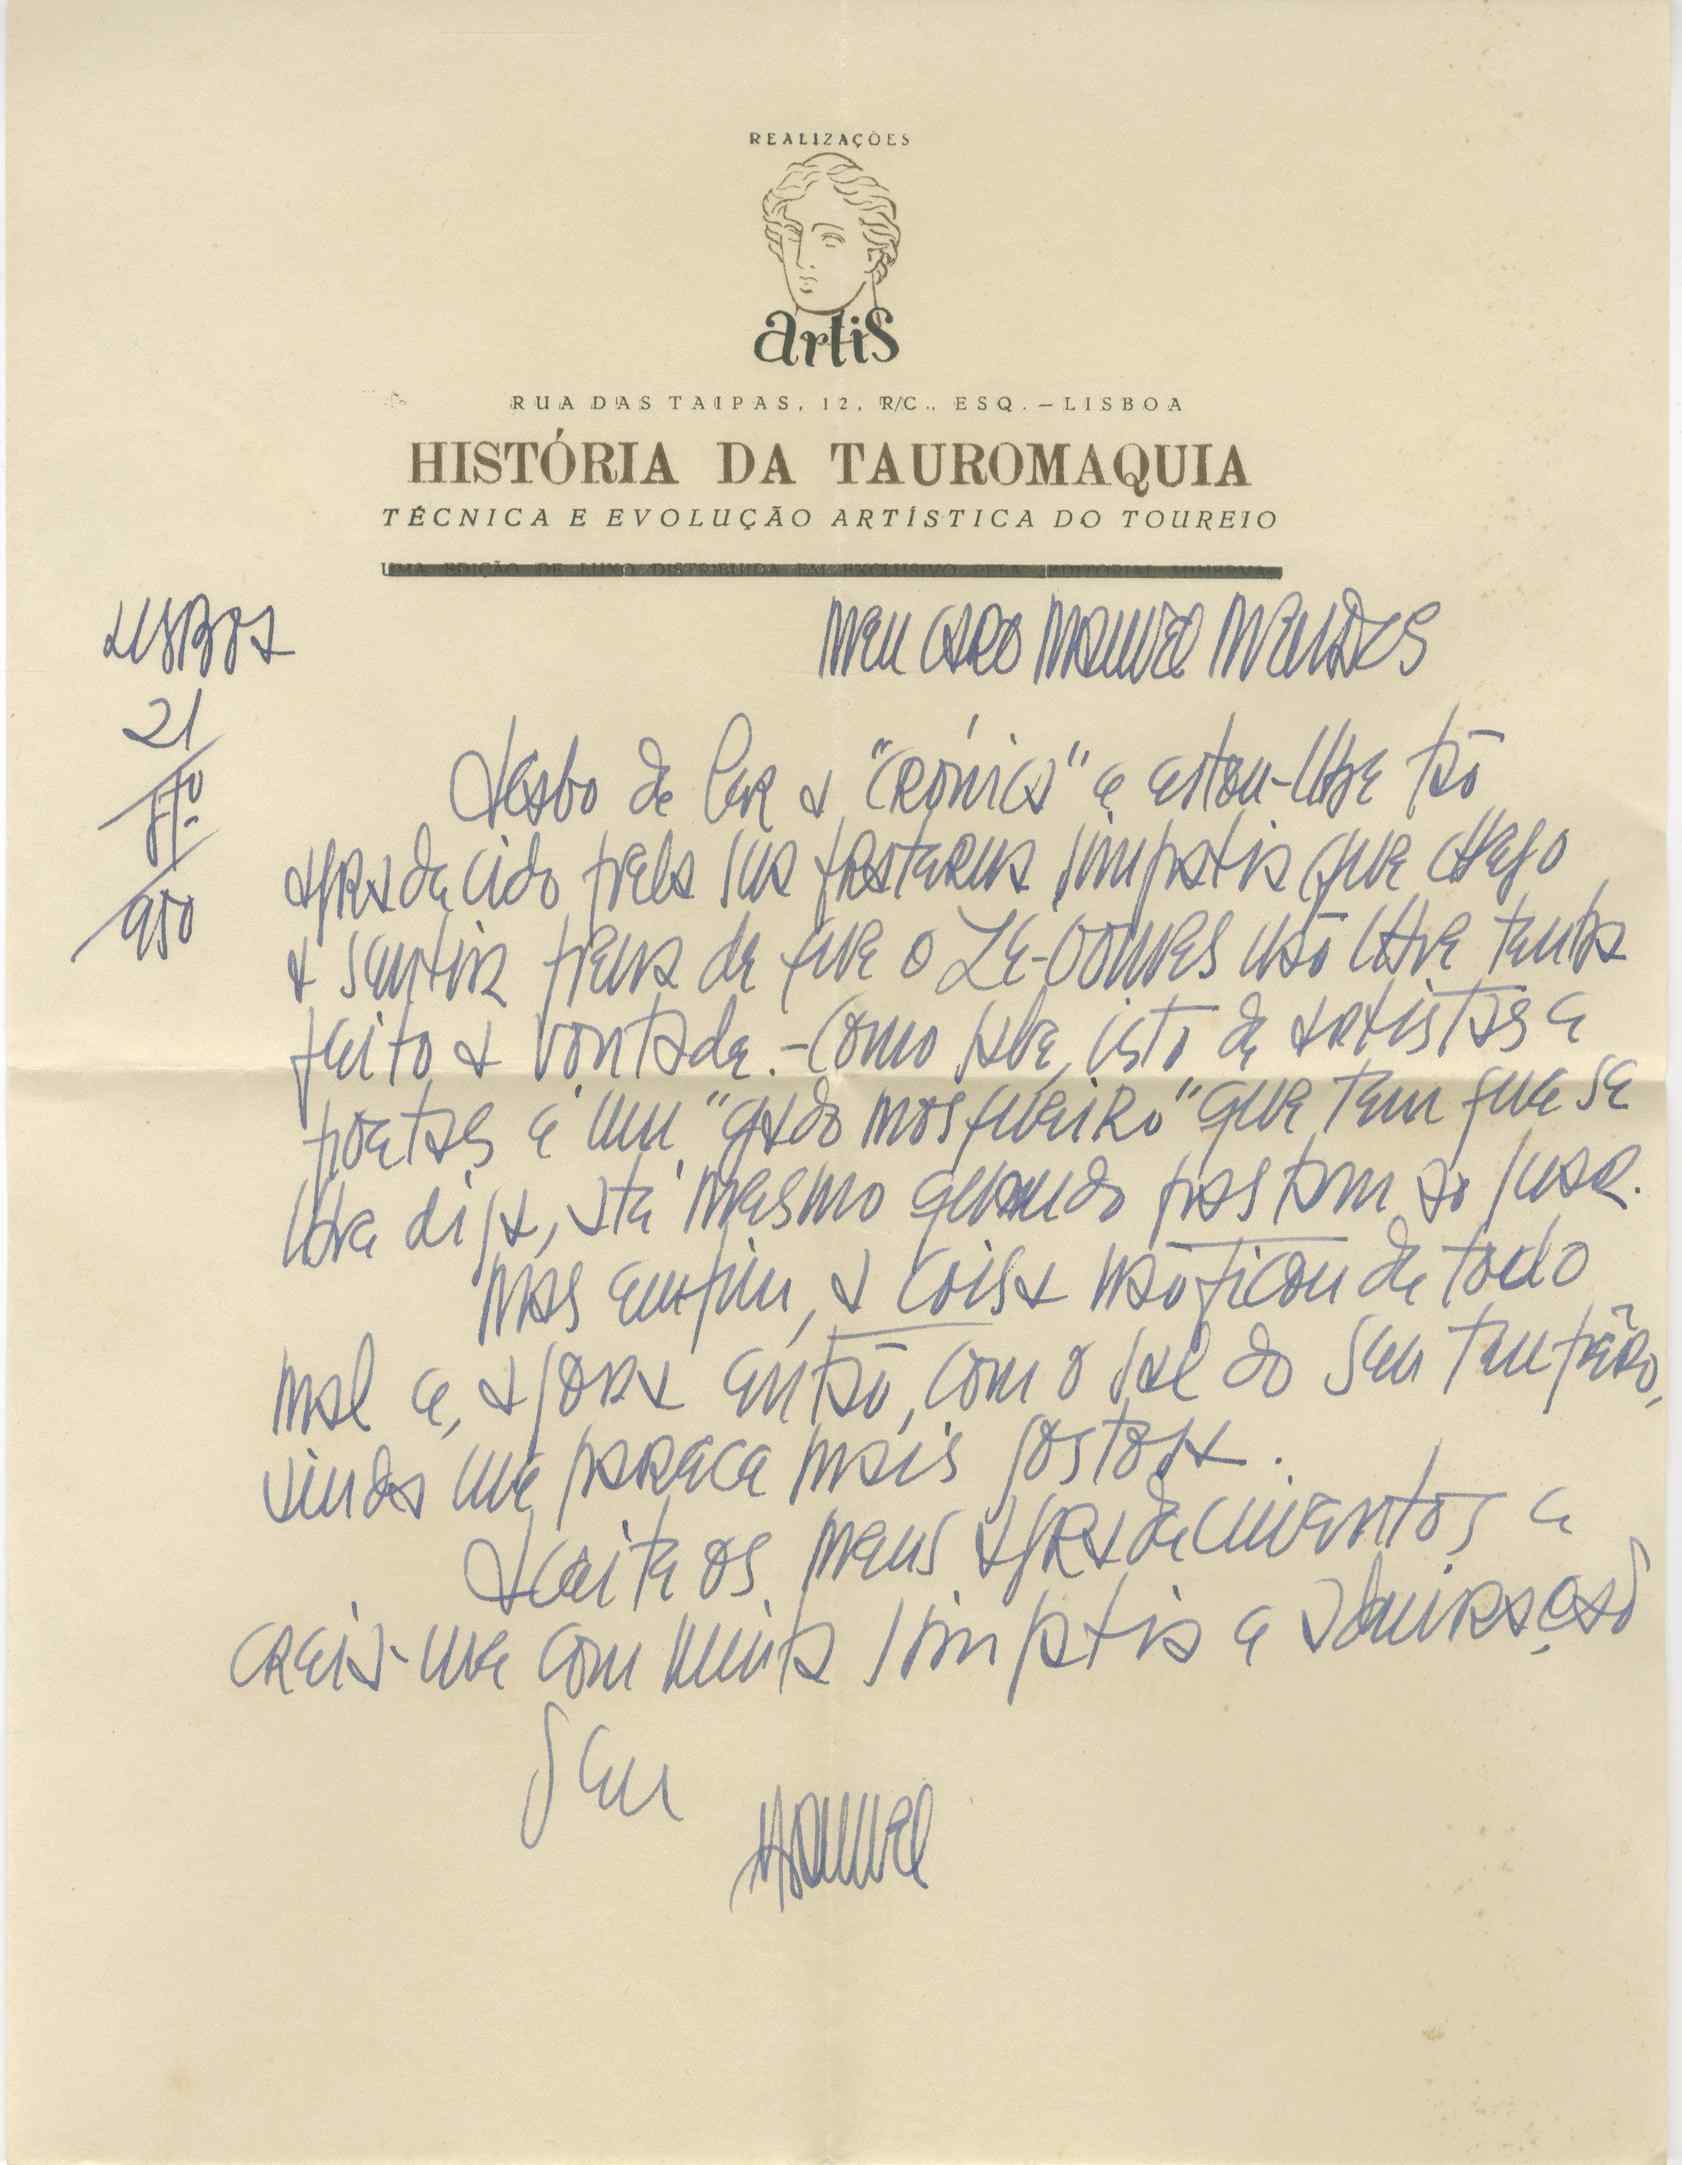 REALIZAÇÕES
artis
RUA DAS TAIPAS, 12, R/C., ESQ. – LISBOA
HISTÓRIA DA TAUROMAQUIA
TÉCNICA E EVOLUÇÃO ARTÍSTICA DO TOUREIO
UMA EDIÇÃO DE LUXO DISTRIBUIDA EM EXCLUSIVO PELA EDITORIAL MINERVA
LISBOA
21
950
MEU CARO MANUEL MENDES
Acabo de ler a "CRÓNICA" e estou-lhe tão
agradecido pela sua fraterna simpatia que chego
a sentir pena de que o Zé-Gomes não lhe tenha
feito a vontade. - Como sabe, isto de artistas e
poetas é um "gado mosqueiro" que tem que se
lhe diga, até mesmo quando pastam ao luar.
Mas enfim, a coisa não ficou de todo
mal e, agora então, com o sal do seu tempêro,
ainda me parece mais gostosa.
Aceite os meus agradecimentos e
creia-me com muita simpatia e admiração
Seu
Manuel